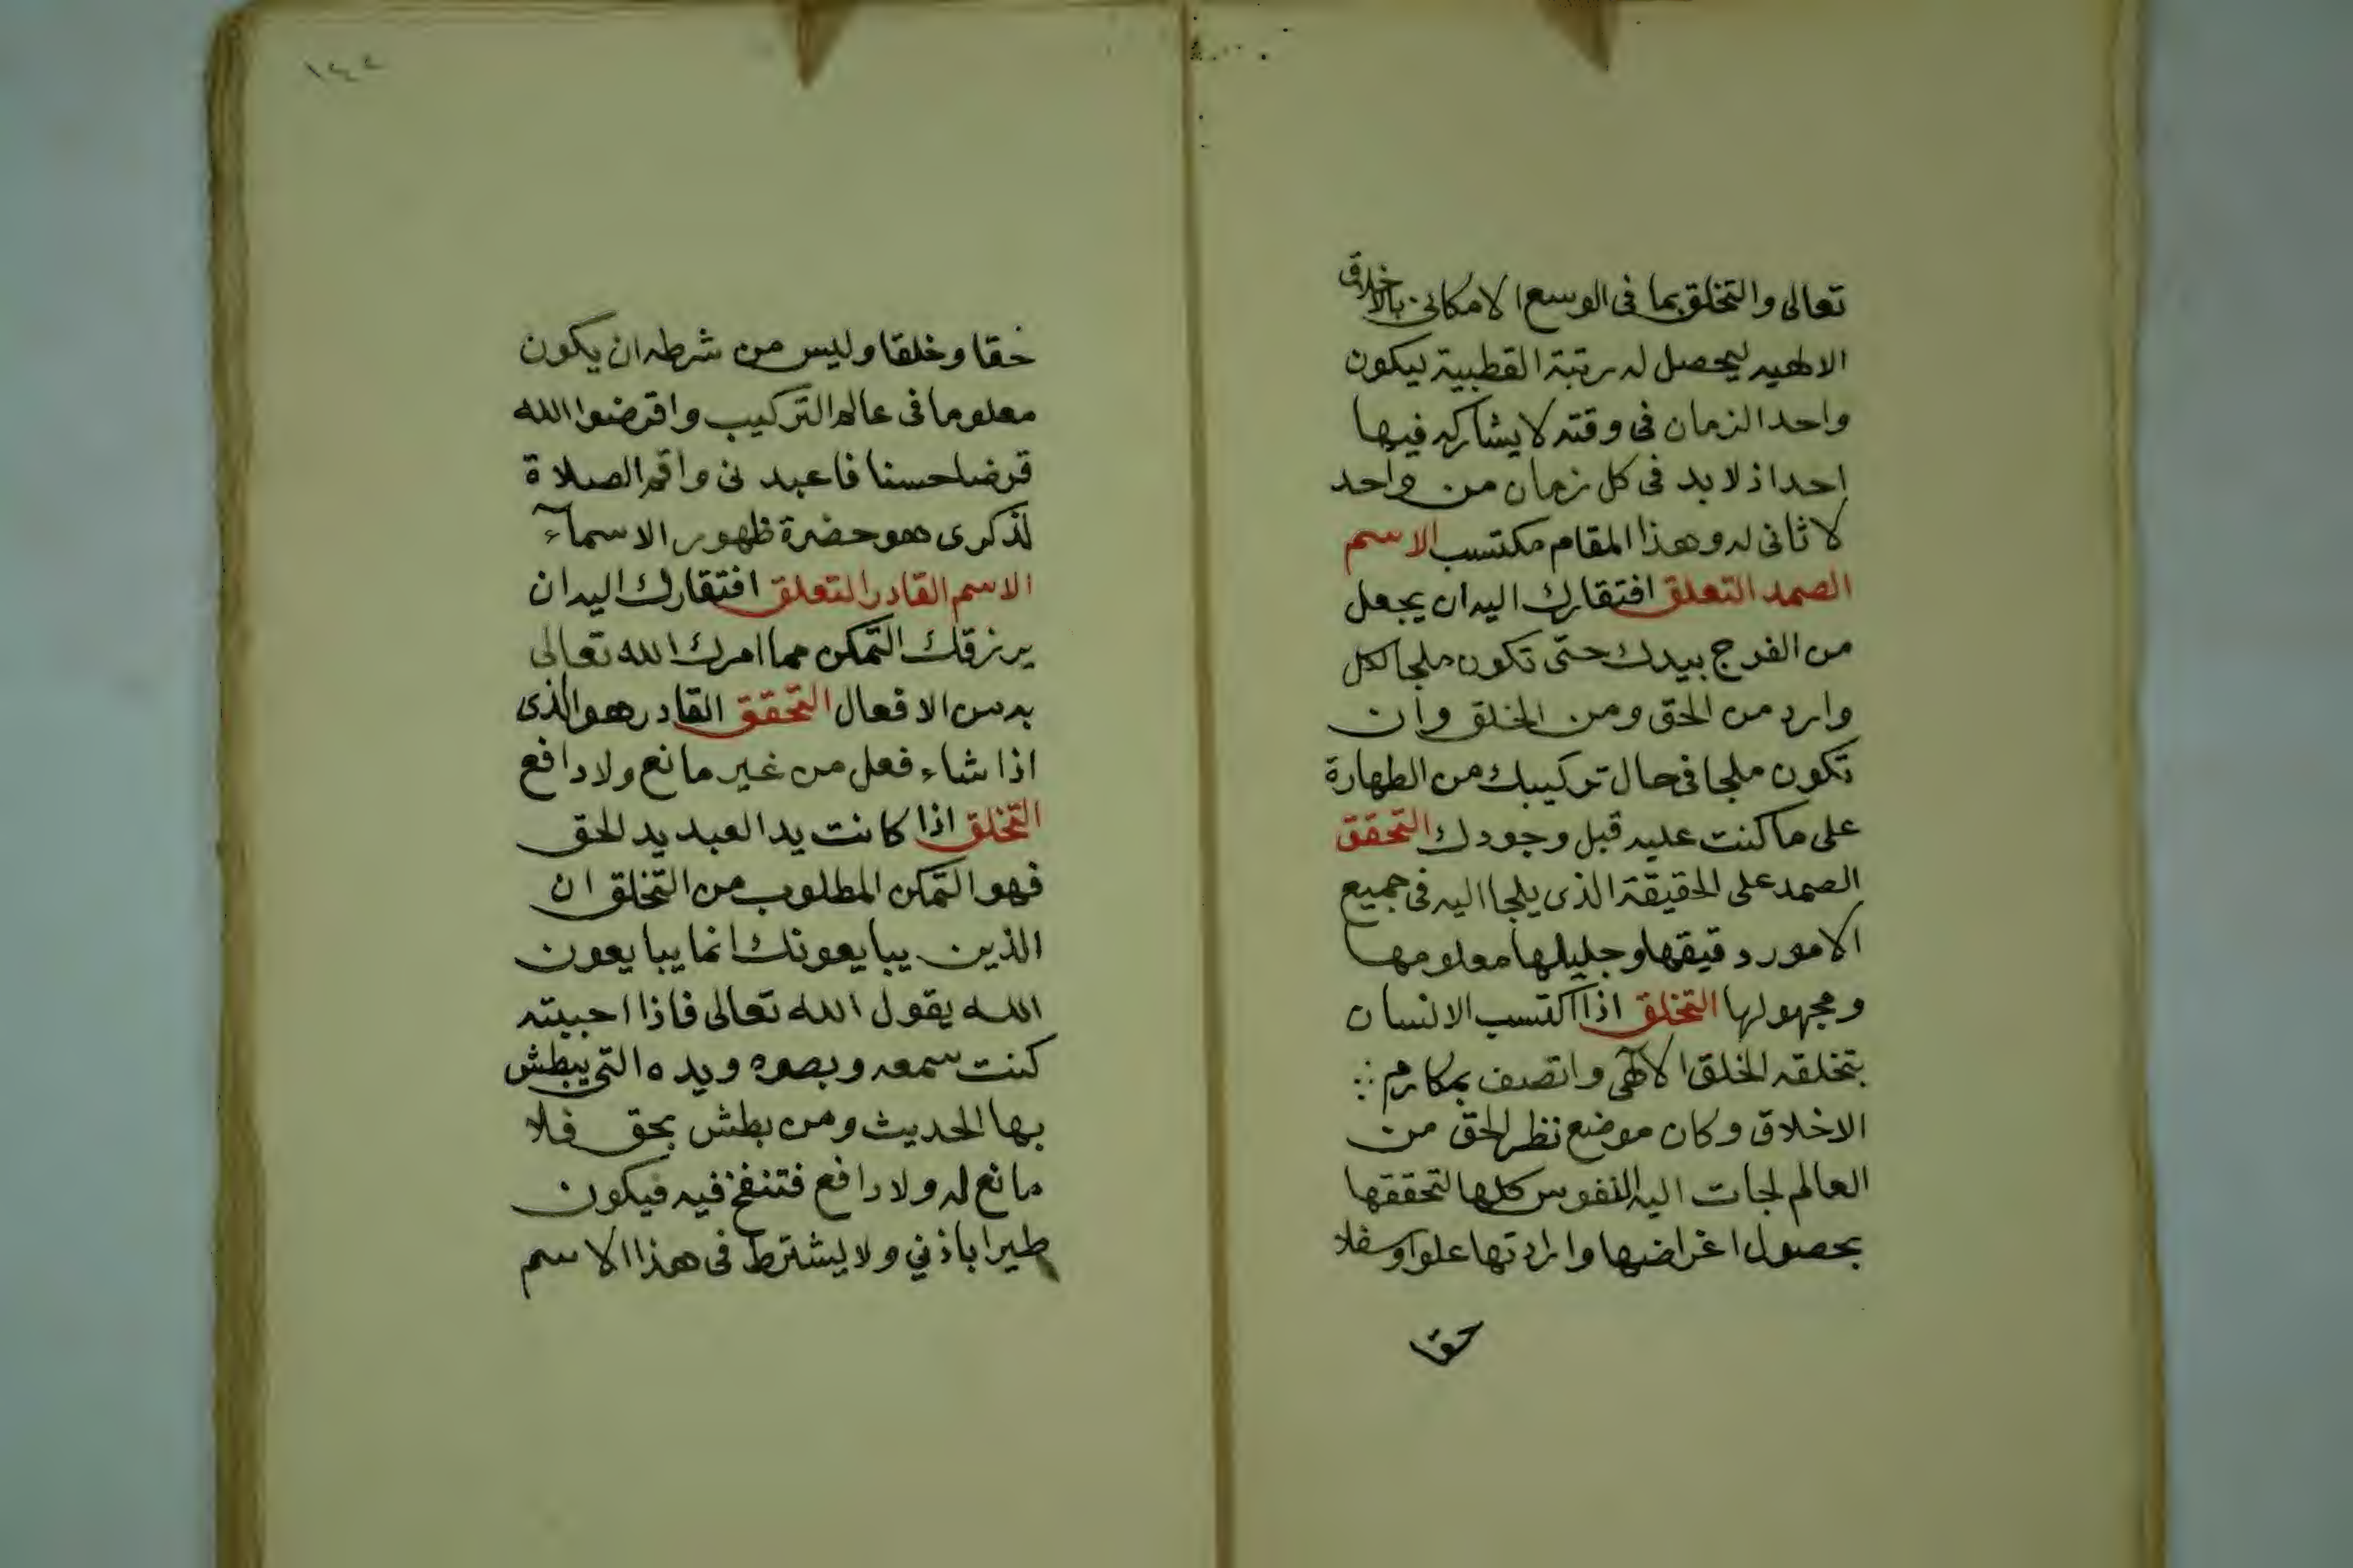 تعالى والتخلق بما فى الوسع الامكانى بالاخلاق
الالهيه ليحصل له رتبة القطبية ليكون
واحد الزمان فى وقته لا يشاركه فيها
احد اذ لا بد فى كل زمان من واحد
لا ثانى له وهذا المقام مكتسب الاسم
الصمد التعلق افتقارك اليه ان يجعل
من الفرج بيدك حتى تكون ملجا لكل
وارد من الحق ومن الخلق وان
تكون ملجا فى حال تركيبك من الطهارة
على ما كنت عليه قبل وجودك التحقق
الصمد على الحقيقة الذى يلجا اليه فى جميع
الامور دقيقها وجليلها معلومها
ومجهولها التخلق اذا اكتسب الانسان
بتخلقه الخلق الالهى واتصف بمكارم
الاخلاق وكان موضع نظر الحق من
العالم لجات اليه النفوس كلها لتحققها
بحصول اغراضها وارادتها علوا وسفلا
حقا
١٤٢
خقا وخلقا وليس من شرطه ان يكون
معلوما فى عالم التركيب واقرضوا الله
قرضا حسنا فاعبدنى واقم الصلاة
لذكرى هو حضرة ظهور الاسمآء
الاسم القادر التعلق افتقارك اليه ان
يرزقك التمكن مما امرك الله تعالى
به من الافعال التحقق القادر هو الذى
اذا شاء فعل من غير مانع ولا دافع
التخلق اذا كانت يد العبد يد الحق
فهو التمكن المطلوب من التخلق ان
الذين يبايعونك انما يبايعون
الله يقول الله تعالى فاذا احببته
كنت سمعه وبصره ويده التى يبطش
بها الحديث ومن بطش بحق فلا
مانع له ولا دافع فتنفخ فيه فيكون
طيرا باذني ولا يشترط فى هذا الاسم